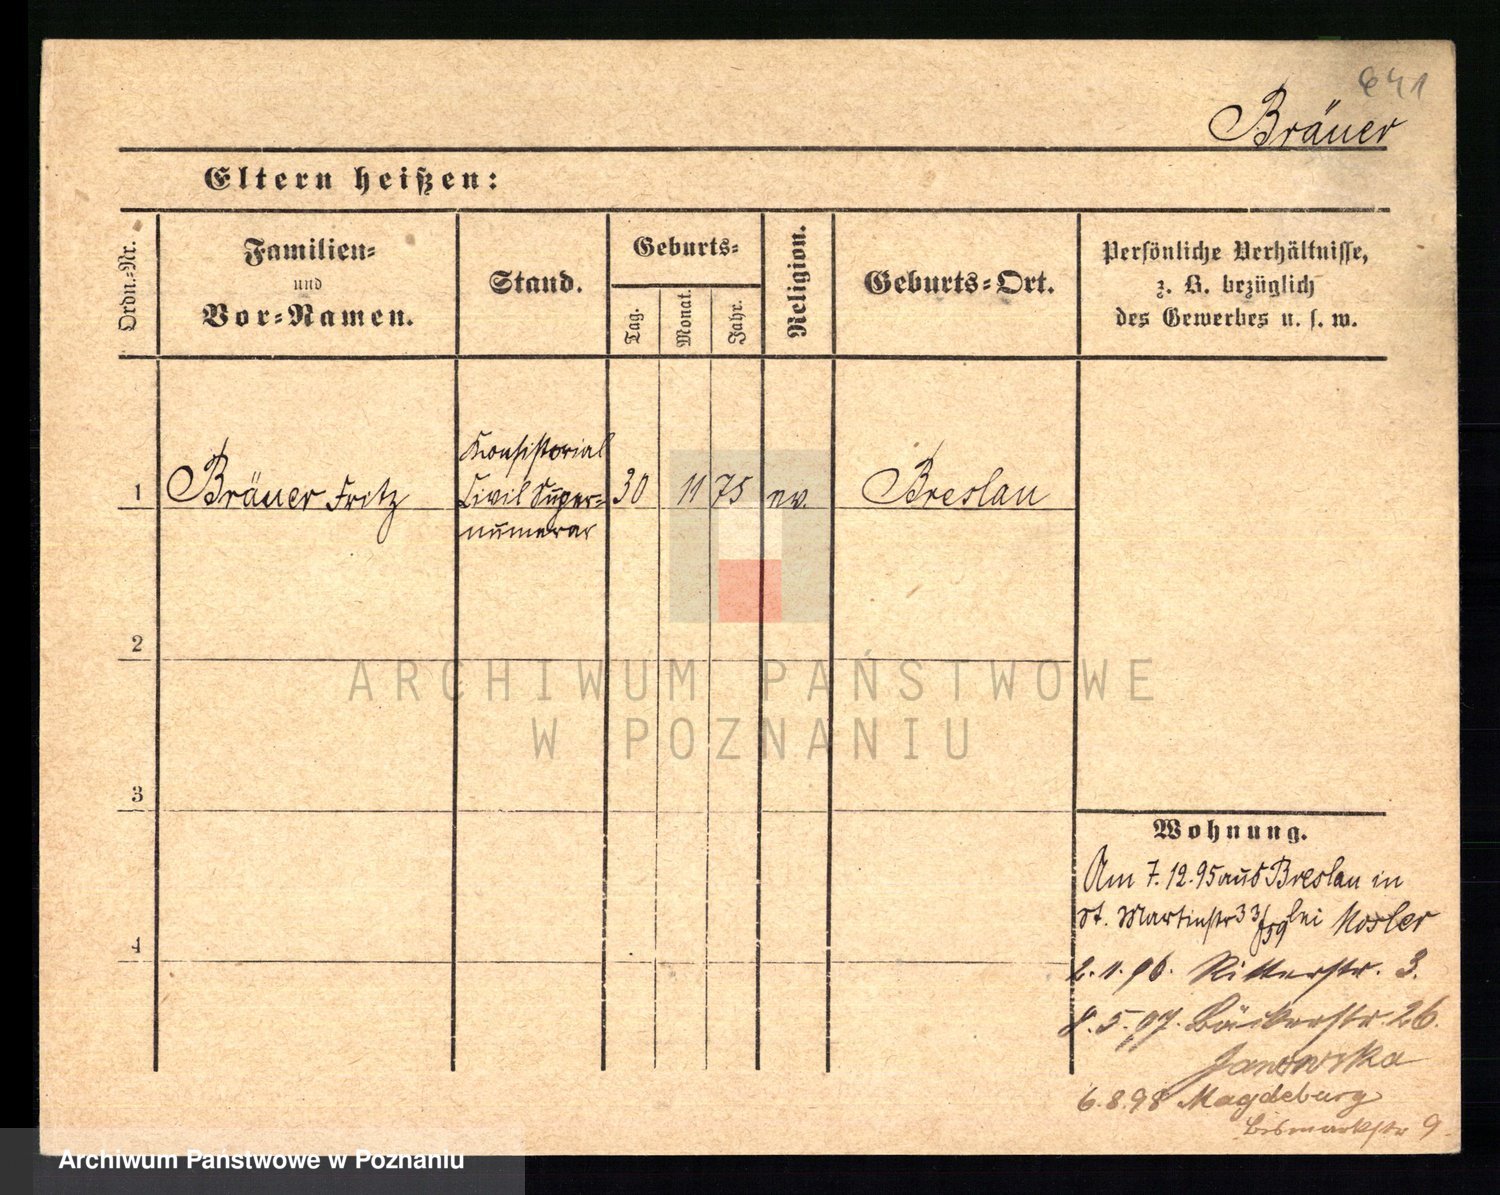 641
Bräuer
Eltern heißen:
Ordn.-Nr.
Familien-
und
Vor-Namen.
Stand.
Geburts-
Tag.
Monat.
Jahr.
Religion.
Geburts-Ort.
Persönliche Verhältnisse,
z. B. bezüglich
des Gewerbes u. s. w.
1 Bräuer Fritz
Konsistorial
Civil Super-
numerar
30 11 75 ev. Breslau
2
3
4
ARCHIWUM PAŃSTWOWE
W POZNANIU
Wohnung.
Am 7.12.95 aus Breslau in
St. Martinstr 33/59 bei Mosler
2.1.96. Ritterstr. 3.
8.5.97. Bäckerstr. 26.
Janowska
6.8.98 Magdeburg
Bismarkstr 9
Archiwum Państwowe w Poznaniu